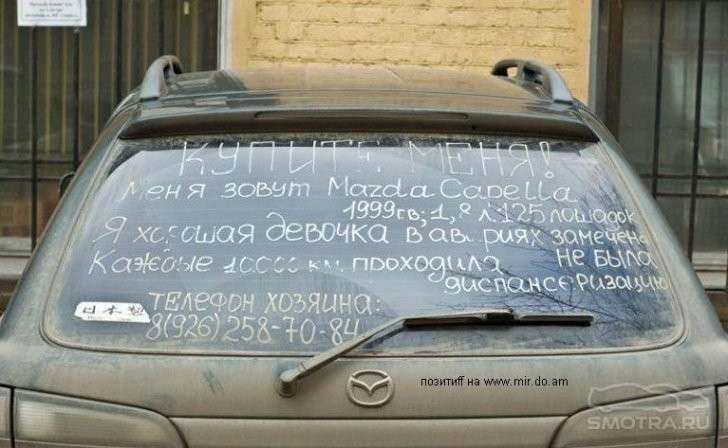 КУПИТЕ МЕНЯ!
Меня зовут Mazda Capella
1999гв; 1,8 л. 125 лошадок
Я хорошая девочка в авариях замечена
не была
Каждые 10000 км. проходила
диспансеризацию
ТЕЛЕФОН ХОЗЯИНА:
8(926)258-70-84
日本製
позитиff на www.mir.do.am
SMOTRA.RU